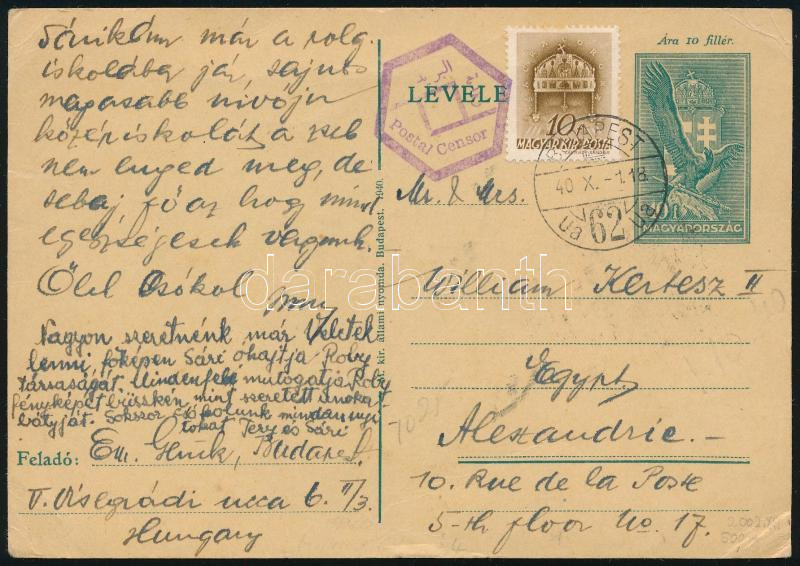 Sárikám már a polg.
iskolába jár, sajnos
magasabb nívóju
középiskolát a zseb
nem enged meg, de
sebaj fő az hogy mind
egészségesek vagyunk.
Ölel Csókol
Nagyon szeretnénk már Veletek
lenni, főképen Sári ohajtja Roby
társaságát. Mindenfelé mutogatja Roby
fényképét büszkén mint szeretett unokat
bátyját. Sokszor csókolunk mindannyi
tokat Tery és Sári
Feladó: Em. Glück, Budapest
V. Visegrádi ucca 6. II/3.
Hungary
M. kir. állami nyomda. Budapest. 1940.
LEVELE
Postal Censor
10
MAGYAR KIR. POSTA
Ára 10 fillér.
BUDAPEST
40 X. -1.18
62
MAGYARORSZÁG
Mr. & Mrs.
William Kertesz II
Egypt,
Alexandrie. -
10. Rue de la Poste
5-th floor No. 17.
darabanth